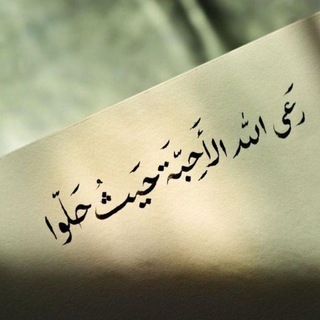 رَعَى الله الأَحِبَّةَ حَيْثُ حَلّوا